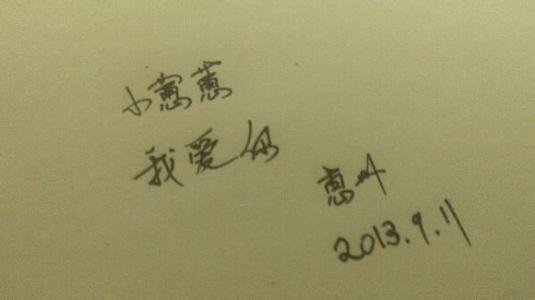 小蕙蕙
我爱你
惠叶
2013.9.11